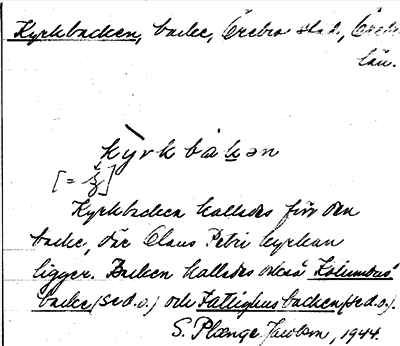 Kyrkbacken, backe, Örebro stad, Örebro
län.
kỳrkbakən
[= ]
Kyrkbacken kallades förr den
backe, där Olaus Petri kyrkan
ligger. Backen kallades också Kolumbus
backe (se d.o.) och Fattighusbacken (se d.o.).
S. Plænge Jacobson, 1944.